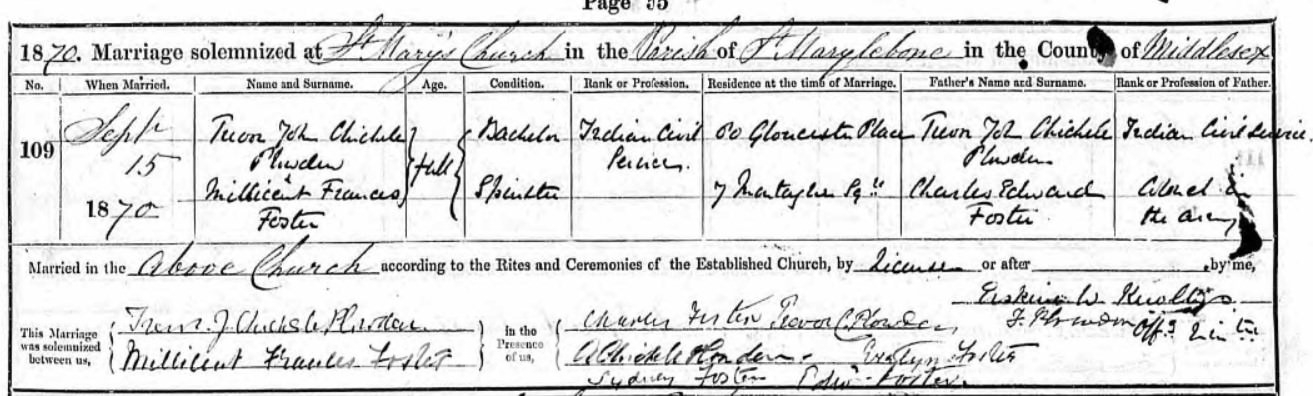 Page 55
1870. Marriage solemnized at St Mary's Church in the Parish of St Marylebone in the County of Middlesex
No. When Married. Name and Surname. Age. Condition. Rank or Profession. Residence at the time of Marriage. Father's Name and Surname. Rank or Profession of Father.
109 Sept Trevor Joh Chichele full Bachelor Indian Civil 60 Gloucester Place Trevor Joh Chichele Indian Civil Service.
15 Plowden Service Plowden
1870 Millicent Frances Spinster 7 Montaghu Sqre Charles Edward Colonel in
Foster Foster the army
Married in the Above Church according to the Rites and Ceremonies of the Established Church, by License or after by me,
Erskine W Knollys
Offg Minter
This Marriage was solemnized between us, Trevor J Chichele Plowden in the Presence of us, Charles Foster Trevor C Plowden F. Plowden
Millicent Frances Foster A Chichele Plowden. Evelyn Foster
Sydney Foster Edw. Foster.